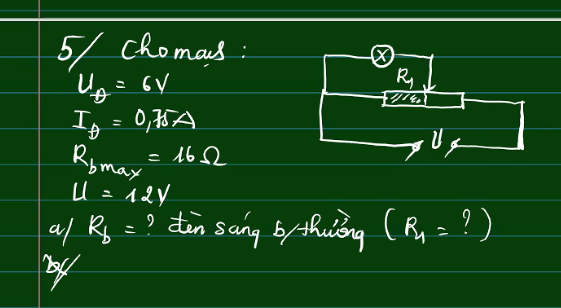 5/ Cho mạch :
U_Đ = 6V
I_Đ = 0,75A
R_bmax = 16 Ω
U = 12V
a/ R_b = ? đèn sáng b/thường ( R_1 = ? )
b/
R_1
U